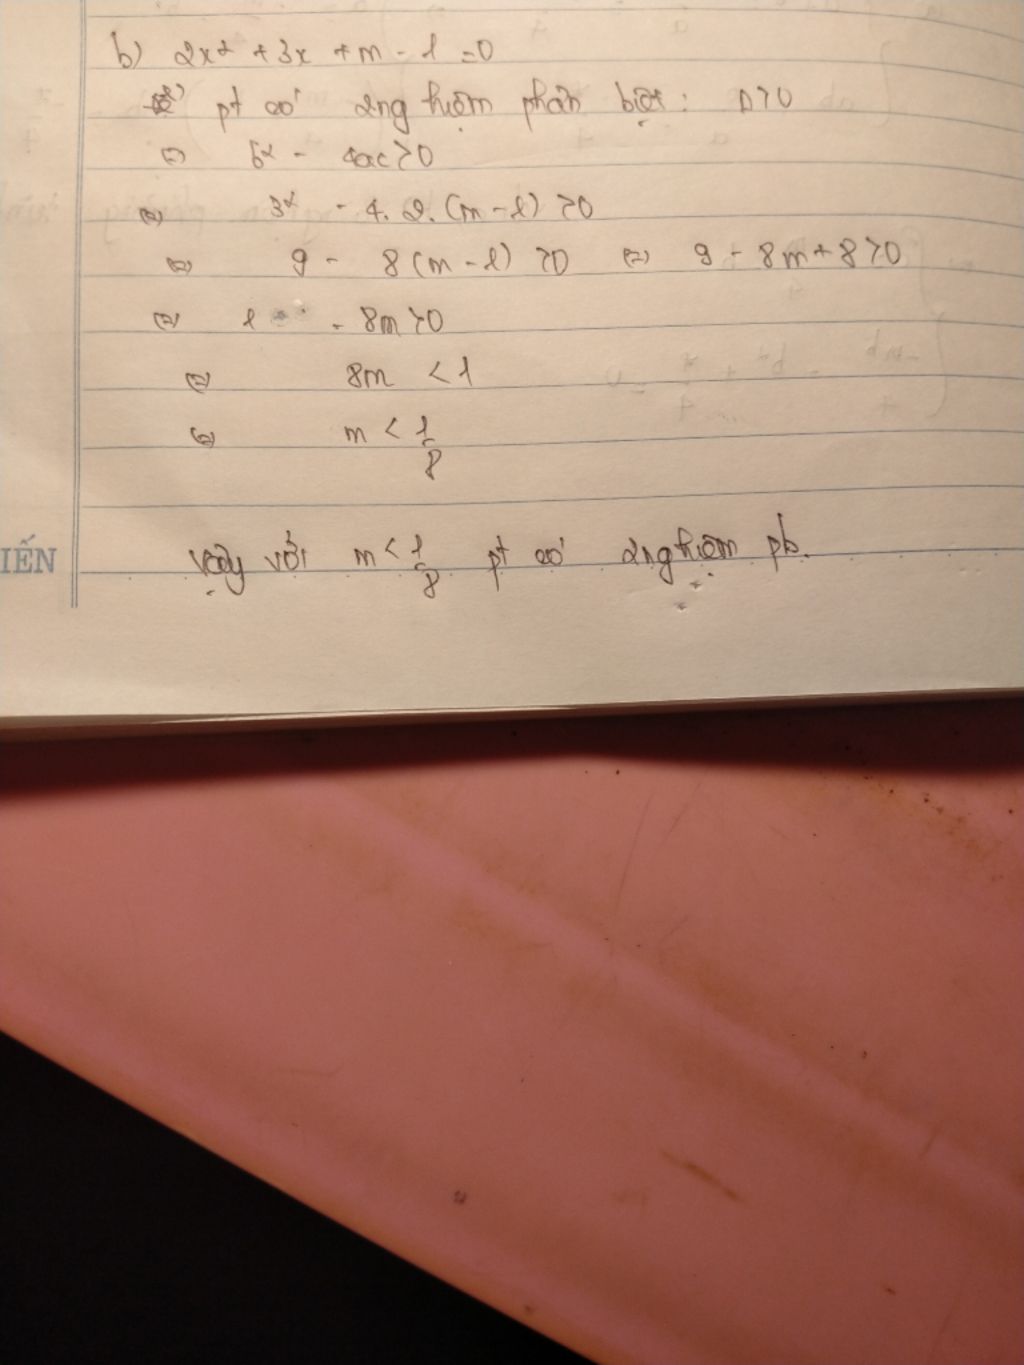 b) 2x² + 3x + m - 1 = 0
pt có 2 nghiệm phân biệt: Δ > 0
⇔ b² - 4ac > 0
⇔ 3² - 4. 2. (m - 1) > 0
⇔ 9 - 8(m - 1) > 0 ⇔ 9 - 8m + 8 > 0
⇔ 1 - 8m > 0
⇔ 8m < 1
⇔ m < 1/8
IẾN
Vậy với m < 1/8 pt có 2 nghiệm pb.